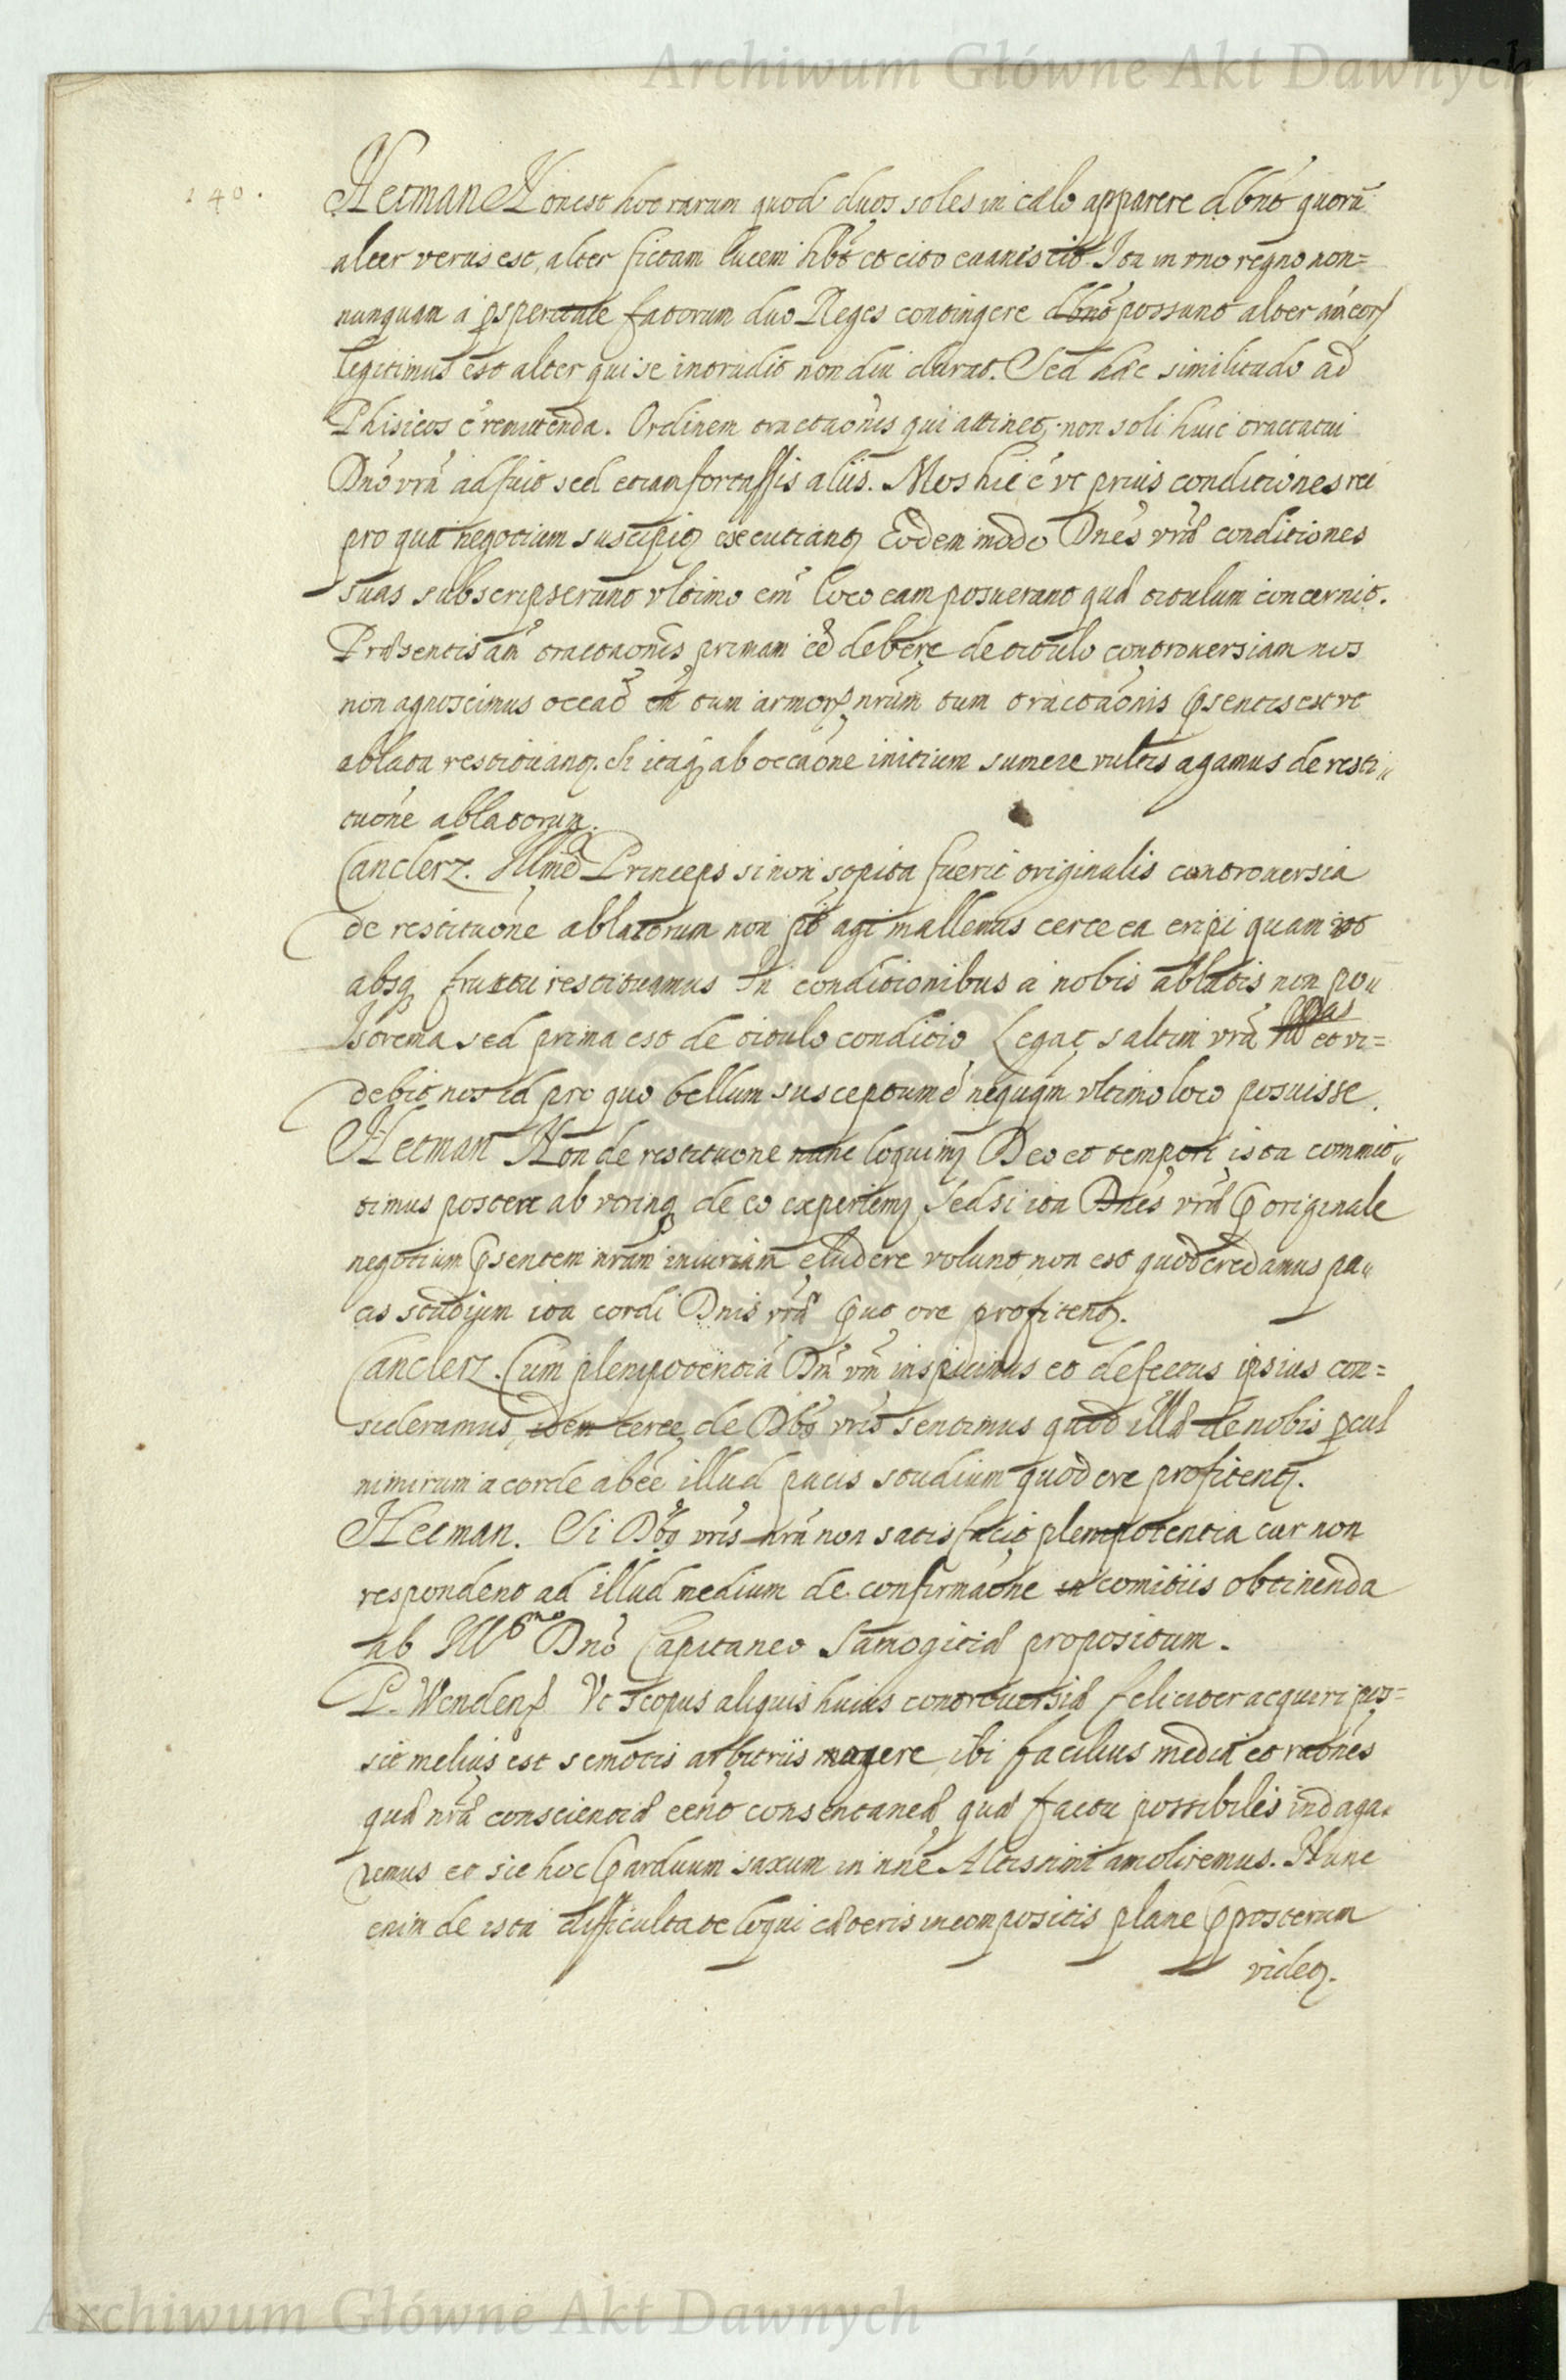 Archiwum Główne Akt Dawnych
140.
Hetman Non est hoc rarum quod duos soles in cælo apparere dbnt quorū
alter verus est, alter fictam lucem hbt et cito euanescit Ita in vno regno non=
nunquam a psperitate fatorum duo Reges contingere possunt alter
legitimus est alter qui se intrudit non diu durat. Sed hæc similitudo ad
Phisicos ē remittenda. Ordinem tractaōnis qui attinet, non soli huic tractatui
Dnō vrā adfuit sed etiam fortassis aliis. Mos hic ē vt prius conditiones rei
pro qua negotium suscipiꝫ excutianꝫ Eodem modo Dnēs vræ conditiones
suas subscripserunt vltimo em̄ loco eam posuerunt quæ titulum concernit.
Præsentis aūt tractaōnis primam eē debere de titulo controuersiam nos
non agnoscimus occaō em̄ tum armorꝝ nrūm tum tractaōnis psentis est vt
ablata restituanꝫ. Si itaqꝫ ab occaōne initium sumere vultis agamus de resti„
tuōne ablatorum.
Canclerz. Illmē Princeps si non sopita fuerit originalis controuersia
de restituōne ablatorum non pōt agi mallemus certe ea eripi quam vt
absqꝫ fructu restituamus In conditionibus a nobis ablatis non po„
strema sed prima est de titulo conditio Legat saltim vrā illas et vi=
debit nos id pro quo bellum susceptum ē nequaqm̄ vltimo loco posuisse.
Hetman Non de restituōne nunc loquimꝫ Deo et tempori ista commit„
timus postere ab vtrinqꝫ de eo experiemꝫ, Sed si ita Dnēs vræ p originale
negotium psentem nrām iniuriam eludere volunt, non est quod credamus pa„
cis studium ita cordi Dnis vrīs put ore profitenꝫ.
Canclerz. Cum plenipotentiā Dn̄ vrā inspicimus et defectus ipsius con=
sideramus, idem certe de Dbꝫ vrīs sentimus quod illæ de nobis pcul
nimirum a corde abeē illud pacis studium quod ore profitenꝫ.
Hetman. Si Dbꝫ vrīs nrā non satisfacit plenipotentia cur non
respondent ad illud medium de confirmaōne in comitiis obtinenda
ab Illmo Dnō Capitaneo Samogitiæ propositum.
P. Wendenꝭ Vt scopus aliquis huius controuersiæ feliciter acquiri pos=
sit melius est semotis arbitriis agere, ibi facilius media et raōnes
quæ nræ conscientiæ eēnt consentaneæ quæ factu possibiles indaga„
remus et sic hoc parduum saxum in nn̄e Altissimi amoliremus. Nunc
enim de ista difficultate loqui cæteris incompositis plane pposterum
videꝫ.
Archiwum Główne Akt Dawnych